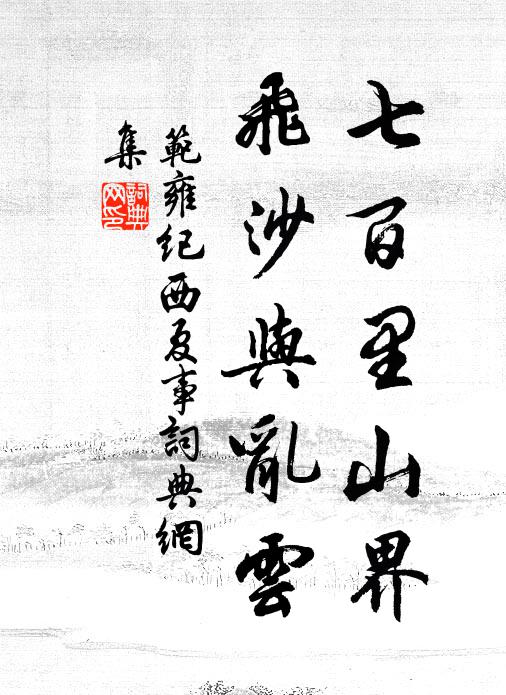 七百里山界
飛沙與亂雲
範雍紀西夏事詞典網
集
詞典
网印